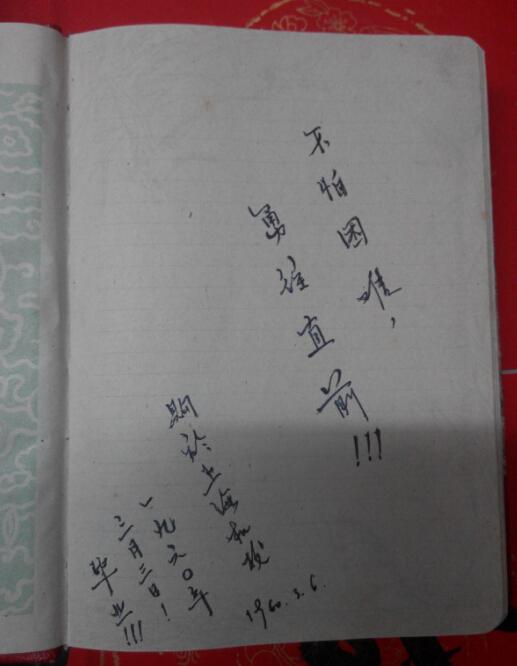 不怕困难，
勇往直前!!!
于上海机校
一九六〇年
三月三日!
毕业!!!
1960.3.6.